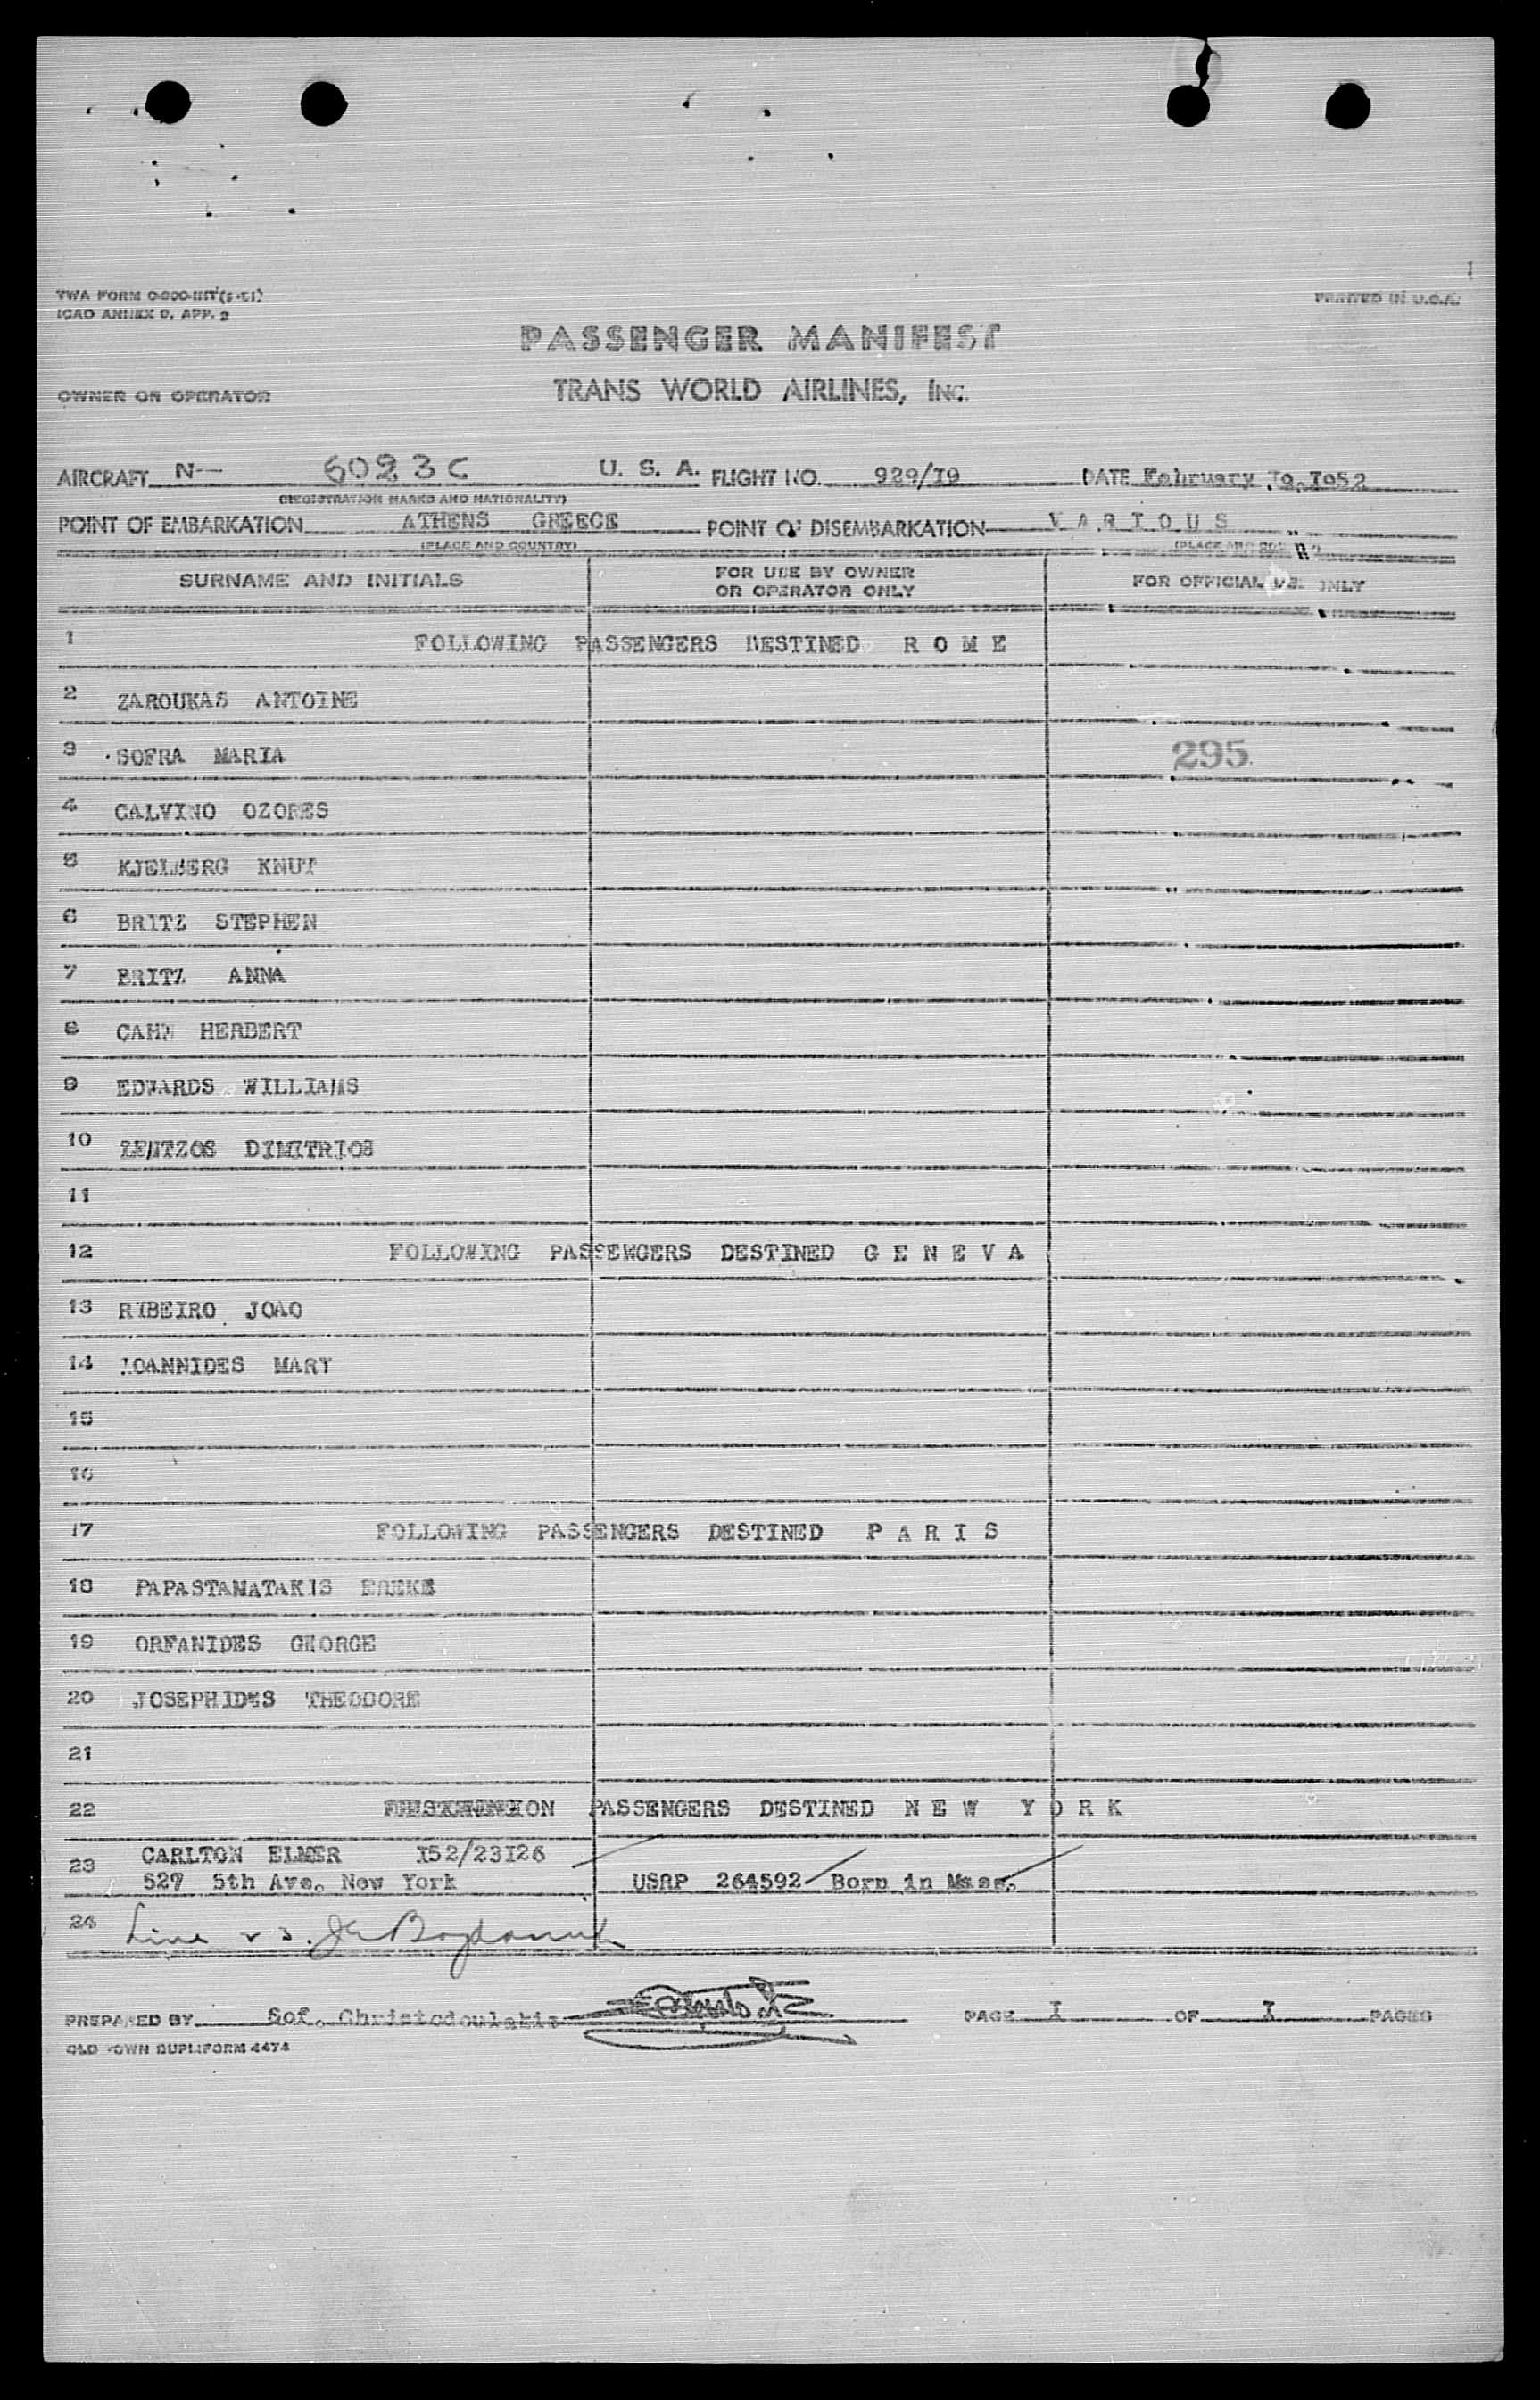 TWA FORM
ICAO ANNEX 9, APP. 2
PRINTED IN U.S.A.
PASSENGER MANIFEST
OWNER OR OPERATOR TRANS WORLD AIRLINES, INC.
AIRCRAFT N-- 6023C U. S. A. FLIGHT NO. 929/I9 DATE February I9, I952
(REGISTRATION MARKS AND NATIONALITY)
POINT OF EMBARKATION ATHENS GREECE POINT OF DISEMBARKATION V A R I O U S
(PLACE AND COUNTRY) (PLACE AND
SURNAME AND INITIALS FOR USE BY OWNER OR OPERATOR ONLY FOR OFFICIAL USE ONLY
1 FOLLOWING PASSENGERS DESTINED R O M E
2 ZAROUKAS ANTOINE
3 SOFRA MARIA 295
4 CALVINO OZORES
5 KJELBERG KNUT
6 BRITZ STEPHEN
7 BRITZ ANNA
8 CAHN HERBERT
9 EDWARDS WILLIAMS
10 DIMITRIOS
11
12 FOLLOWING PASSENGERS DESTINED G E N E V A
13 RIBEIRO JOAO
14 IOANNIDES MARY
15
16
17 FOLLOWING PASSENGERS DESTINED P A R I S
18 PAPASTAMATAKIS
19 ORFANIDES GEORGE
20 JOSEPHIDES THEODORE
21
22 PASSENGERS DESTINED N E W Y O R K
23 CARLTON ELMER I52/23I26
527 5th Ave. New York USRP 264592 Born in Mass.
24 Line
PREPARED BY Sof. Christodoulakis PAGE I OF I PAGES
OLD TOWN DUPLIFORM 4474